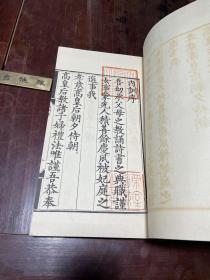 內訓序
吾幼承父母之教誦詩書之典職謹
女事蒙先人積善餘慶夙被妃庭之
選事我
孝慈高皇后朝夕侍朝
高皇后教諸子婦禮法唯謹吾恭奉